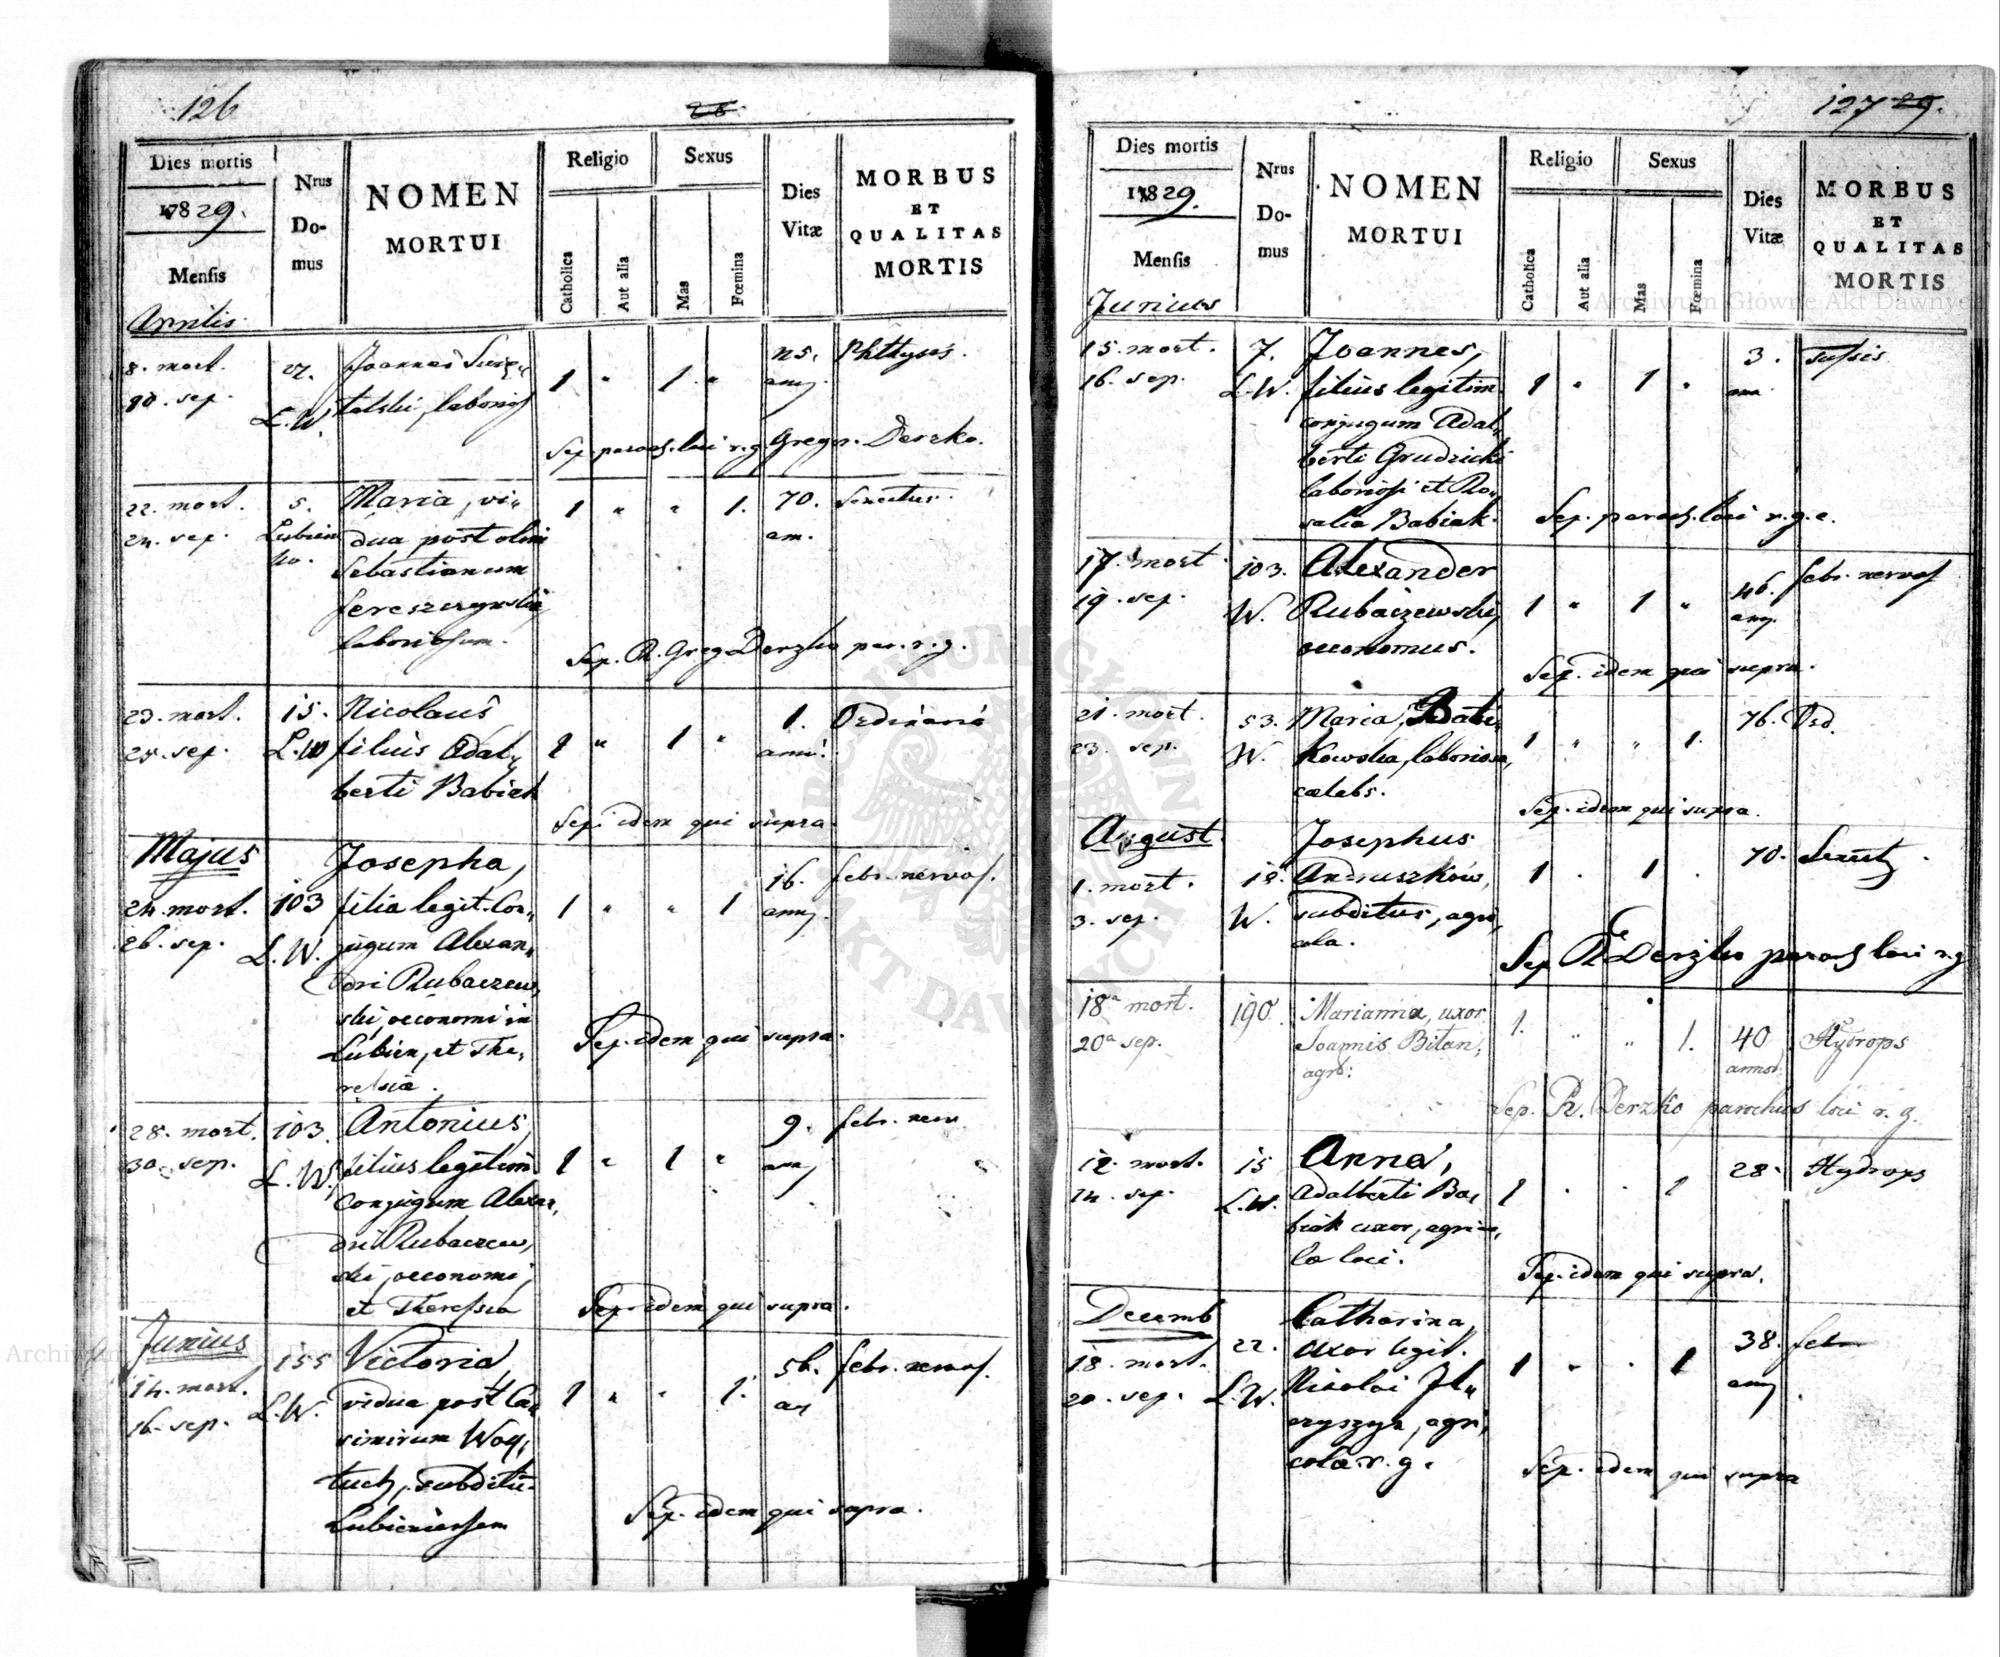 126
28
Dies mortis
1829.
Mensis
Nrus Domus
NOMEN
MORTUI
Religio
Catholica
Aut alia
Sexus
Mas
Fœmina
Dies Vitæ
MORBUS
ET
QUALITAS
MORTIS
Aprilis
8. mort. 27. Joannes
sep. L. W. talski, laborios
1 " 1 " Phthysis.
Sep. paroch. loci r. g. Gregor. Derzko.
22. mort. 5. Maria, vi-
24. sep. dua post olim
Sebastianum
laboriosum.
1 " " 1. 70. Senectus.
an.
Sep. R. Greg Derzko par. r. g.
23. mort. 15. Nicolaus
25. sep. L. W filius Adal-
berti Babiak
1 " 1 " 1. Ordinaria
anni
Sep. idem qui supra.
Majus
24. mort. 103 Josepha,
26. sep. L. W. filia legit. Con-
jugum Alexan-
dri Rubaczew-
ski, oeconomi in
Lubien, et The-
resia.
1 " " 1 16. febr. nervos.
ann.
Sep. idem qui supra.
28. mort. 103. Antonius,
30. sep. L. W. filius legitim.
conjugum Alexan-
dri Rubaczew-
ski, oeconomi,
et Theresia
1 " 1 " 9. febr. nerv.
ann
Sep. idem qui supra.
Junius
14. mort. 155 Victoria
16. sep. L. W. vidua post Ca-
simirum Woy-
tuch, subditu
Lubieniensem
1 " " 1. 56. febr. nervos.
an
Sep. idem qui supra.
127 29.
Dies mortis
1829.
Mensis
Nrus Domus
NOMEN
MORTUI
Religio
Catholica
Aut alia
Sexus
Mas
Fœmina
Dies Vitæ
MORBUS
ET
QUALITAS
MORTIS
Junius
15. mort. 7. Joannes,
16. sep. L. W. filius legitim.
conjugum Adal-
berti Grudzicki
laboriosi et Ro-
salia Babiak.
1 " 1 " 3. Tussis
ann.
Sep. paroch. loci r. g. c.
17. mort 103. Alexander
19. sep. W. Rubaczewski,
oeconomus.
1 " 1 " 46. febr. nervos
ann.
Sep. idem qui supra.
21. mort. 53. Maria,
23. sep. W. kowska, laboriosa,
cælebs.
1 " " 1. 76.
Sep. idem qui supra.
August.
1. mort. Josephus
3. sep. W. Andruszków,
subditus, agri-
cola.
1 . 1 . 70. Senect.
Sep R Derzko paroch loci r. g
18a mort. 190 Marianna, uxor
20a sep. Joannis Bilan,
agr:
1. " " 1. 40 Hydrops
annor.
Sep. R. Derzko parochus loci r. g.
12. mort. 15 Anna,
14. sep. L. W. Adalberti Ba-
biak uxor, agrico-
læ loci.
1 . . 1 28. Hydrops
Sep. idem qui supra.
Decemb
18. mort. 22. Catharina,
20. sep. L. W. uxor legit.
Nicolai
agri-
colæ r. g.
1 " . 1 38. febr
ann
Sep. idem qui supra
Archiwum Główne Akt Dawnych
ARCHIWUM GŁÓWNE AKT DAWNYCH
Archiwum Główne Akt Dawnych